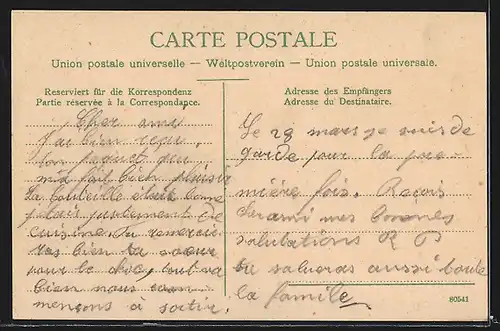 CARTE POSTALE
Union postale universelle — Weltpostverein — Unione postale universale.
Reserviert für die Korrespondenz
Partie réservée à la Correspondance.
Adresse des Empfängers
Adresse du Destinataire.
Cher ami
J'ai bien reçu
ton paquet qui
m'a fait bien plaisir
La bouteille était bonne
j'étais justement de
cuisine. Tu remercie
ras bien ta soeur
pour le choc, tout va
bien nous com
mençons à sortir.
Le 29 mars je suis de
garde pour la pre
mière fois. Reçois
cher ami mes bonnes
salutations R P
tu salueras aussi toute
la famille
80541